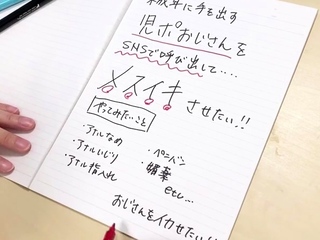 に手を出す
児ポおじさんを
SNSで呼び出して....
メスイキ
させたい!!
やってみたいこと
・アナルなめ
・アナルいじり
・アナル指入れ
・ペニバン
・媚薬
etc...
おじさんをイカせたい!!